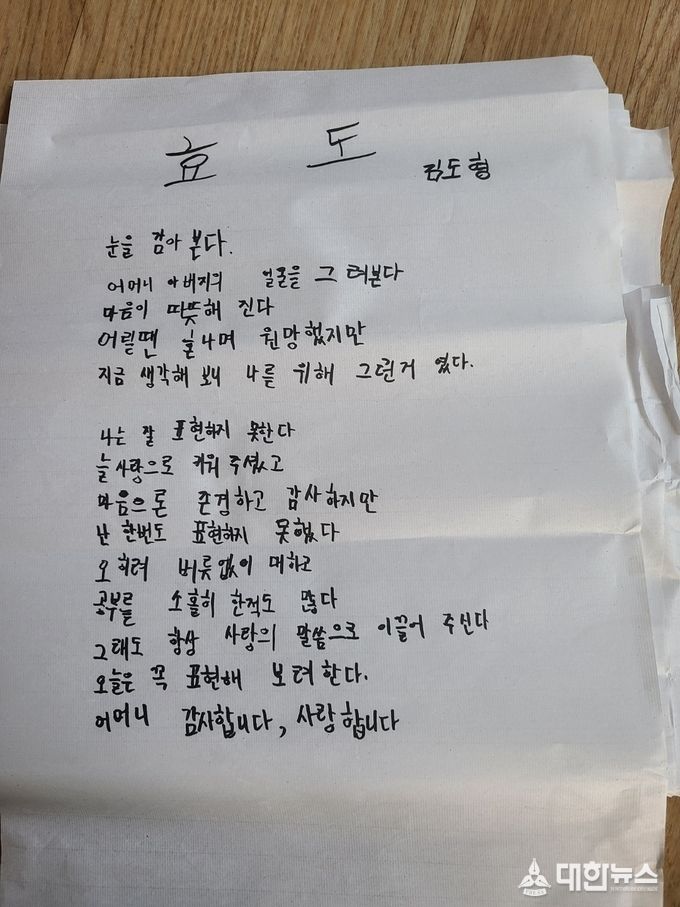 효 도
김도형
눈을 감아 본다.
어머니 아버지의 얼굴을 그려본다
마음이 따뜻해 진다
어릴땐 혼나며 원망했지만
지금 생각해 보니 나를 위해 그런거 였다.
나는 잘 표현하지 못한다
늘 사랑으로 키워 주셨고
마음으론 존경하고 감사하지만
난 한번도 표현하지 못했다
오히려 버릇없이 대하고
공부를 소홀히 한적도 많다
그래도 항상 사랑의 말씀으로 이끌어 주신다
오늘은 꼭 표현해 보려한다.
어머니 감사합니다, 사랑합니다
PRESS
대한뉴스